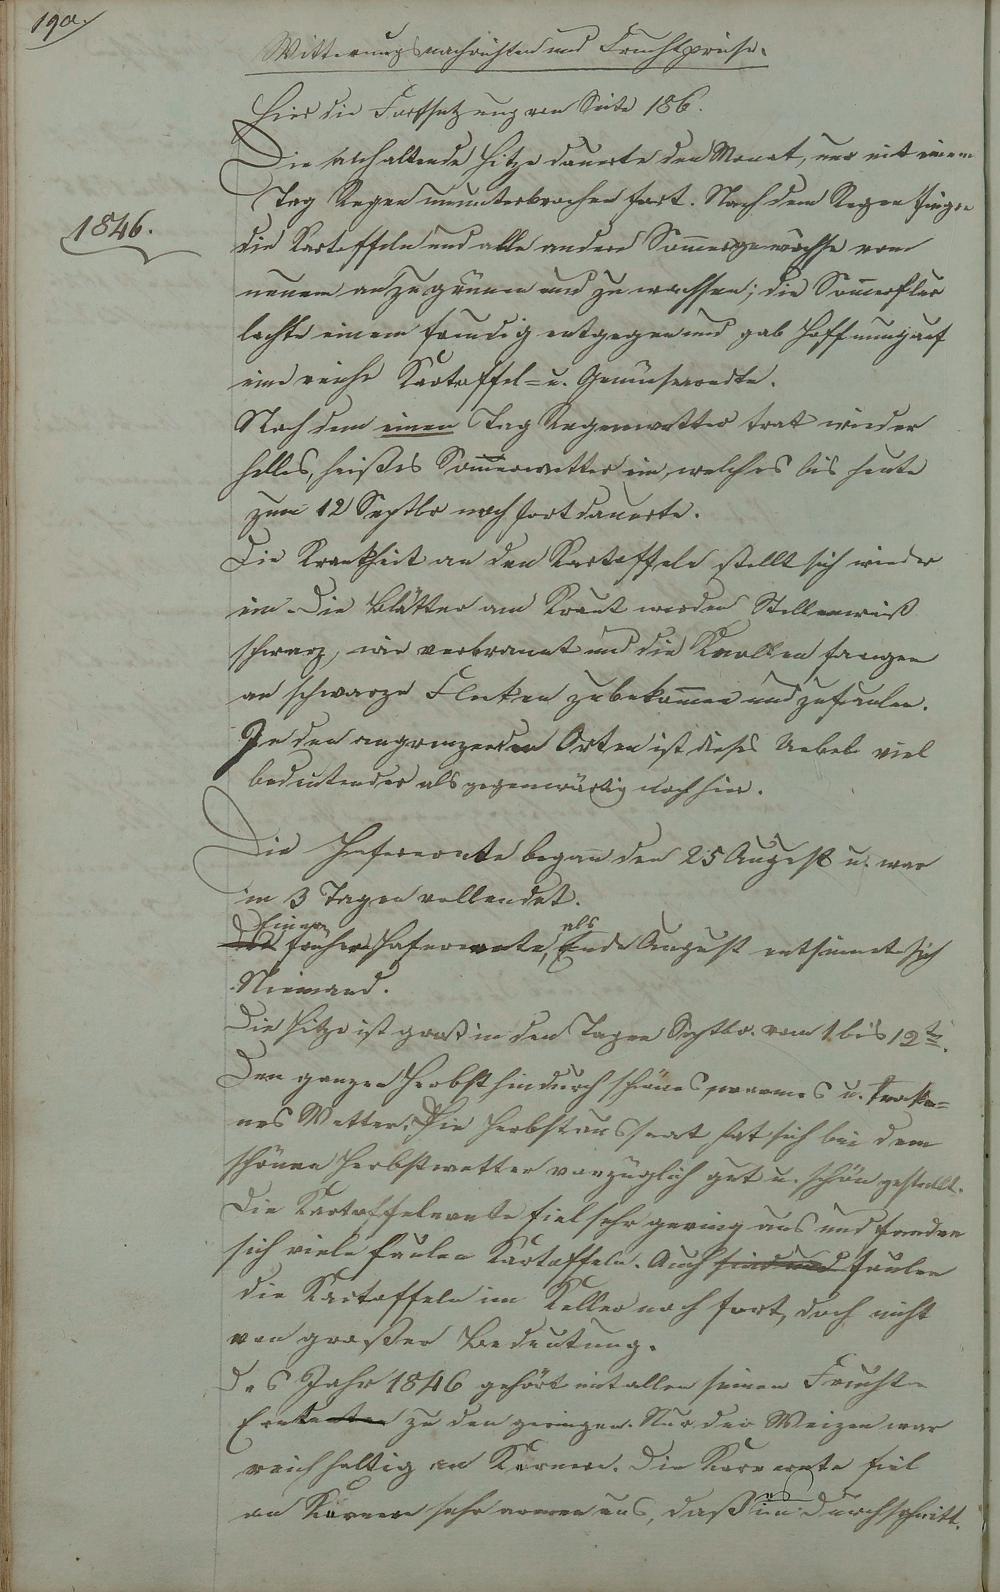 190.
Witterungsnachrichten und Fruchtpreise.
Hier die Fortsetzung von Seite 186.
Die anhaltende Hitze dauerte den Monat, nur mit einem
Tag Regen ununterbrochen fort. Nach dem Regen fingen
1846.
die Kartoffeln und alle andere Sommergewächse von
neuem an zu grünen und zu wachssen; die Sommerflur
lachte einem freudig entgegen und gab Hoffnung auf
eine reiche Kartoffel- u. Gemüseerndte.
Nach dem einen Tag Regenwetter trat wieder
helles, heißes Sommerwetter ein, welches bis heute
zum 12 Septbr noch fortdauerte.
Die Krankheit an den Kartoffeln stellt sich wieder
ein. Die Blätter am Kraut werden Stellenweiß
schwarz, wie verbrannt und die Knollen fangen
an schwarze Flecken zubekommen und zufaulen.
In den angrenzenden Orten ist dieses Uebel viel
bedeutender als gegenwärtig noch hier.
Die Haferernte begann den 25 August u. war
in 3 Tagen vollendet.
Einer frühern Haferernte, als Ende August entsinnet sich
Niemand.
Die Hitze ist groß in den Tagen Septbr. vom 1 bis 12ten.
Den ganzen Herbst hindurch schönes warmes u. trocke-
nes Wetter. Die Herbstaussaat hat sich bei dem
schönen Herbstwetter vorzüglich gut u. schön gestellt.
Die Kartoffelernte fiel sehr gering aus und fanden
sich viele faulen Kartoffeln. Auch sind und faulen
die Kartoffeln im Keller noch fort, doch nicht
von großer Bedeutung.
Das Jahr 1846 gehört mit allen seinen Frucht-
Ernten zu den geringen. Nur der Weizen war
reichhaltig an Körnern. Die Kornernte fiel
an Körnern sehr arm aus, daß es im Durchschnitt.